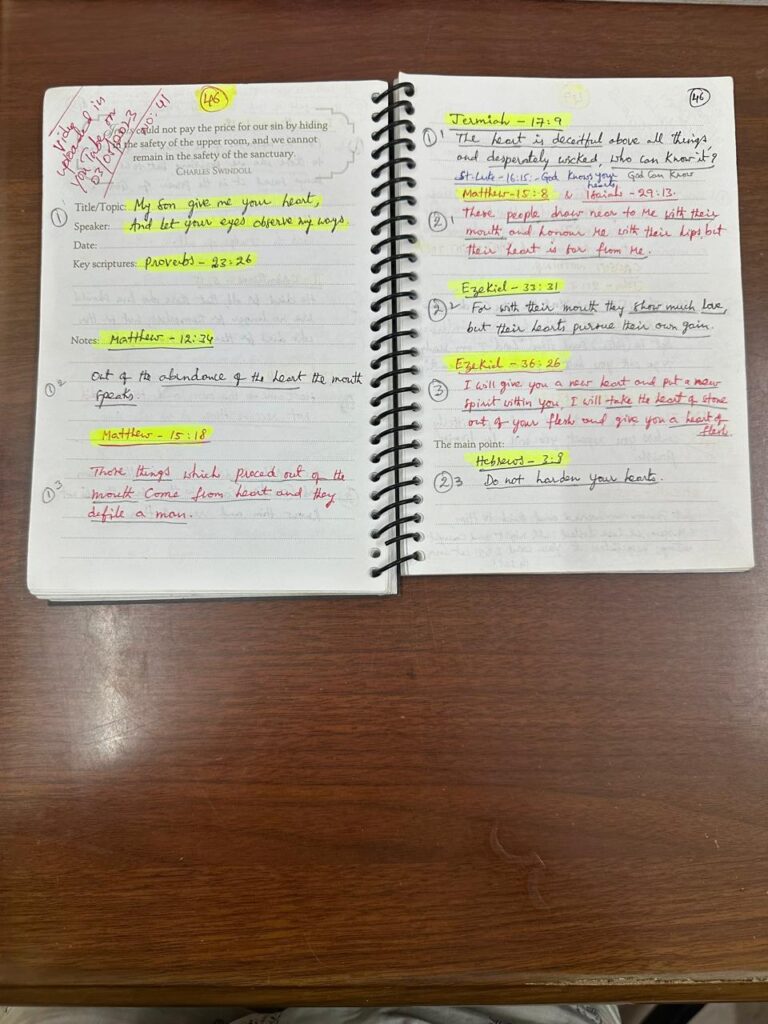 Video
uploaded in
YouTube on
03/01/2023
NO: 41
46
could not pay the price for our sin by hiding
the safety of the upper room, and we cannot
remain in the safety of the sanctuary.
CHARLES SWINDOLL
Title/Topic: My Son give me your heart,
1 Speaker: And let your eyes observe my ways
Date:
Key scriptures: Proverbs - 23:26
Notes: Matthew - 12:34
1 2 Out of the abundance of the heart the mouth
speaks.
Matthew - 15:18
1 3 Those things which proced out of the
mouth come from heart and they
defile a man.
46
Jermiah - 17:9
1 1 The heart is deceitful above all things,
and desperately wicked, who can know it?
St. Luke - 16:15. God knows your hearts God Can Know
Matthew - 15:8 & Isaiah - 29:13.
2 1 These people draw near to Me with their
mouth, and honour Me with their lips, but
their heart is far from Me.
Ezekiel - 33:31
2 2 For with their mouth they show much love,
but their hearts pursue their own gain.
Ezekiel - 36:26
3 I will give you a new heart and put a new
spirit within you, I will take the heart of stone
out of your flesh and give you a heart of
flesh.
The main point:
Hebrews - 3:8
2 3 Do not harden your hearts.